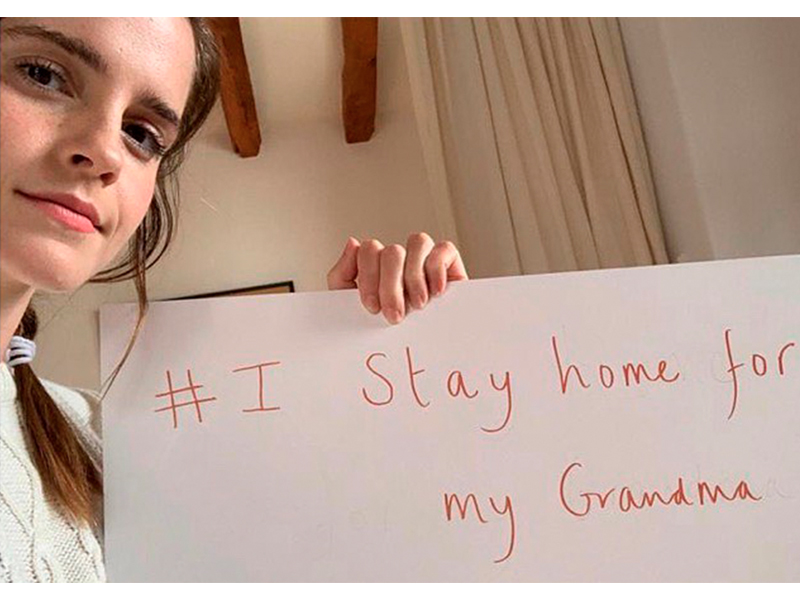 # I Stay home for
my Grandma